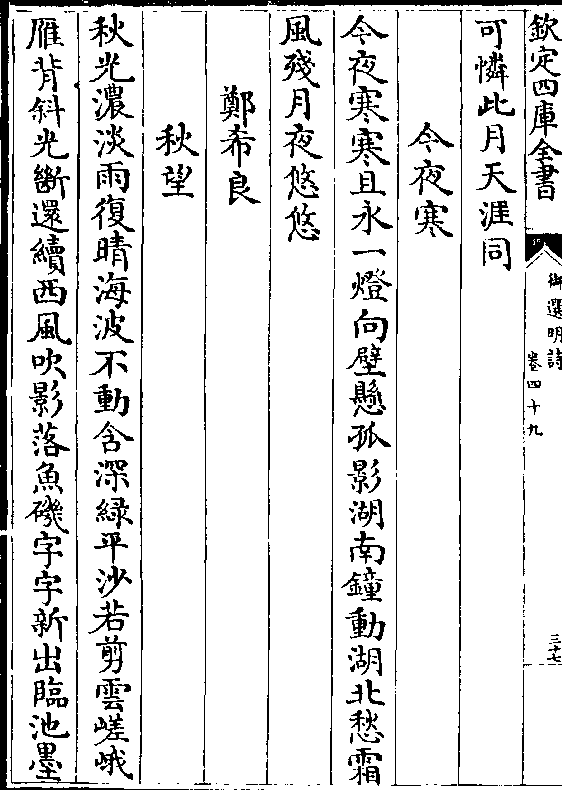 欽定四庫全書
御選明詩
卷四十九
三十七
可憐此月天涯同
今夜寒
今夜寒寒且永一燈向壁懸孤影湖南鐘動湖北愁霜
風殘月夜悠悠
鄭希良
秋望
秋光濃淡雨復晴海波不動含深緑平沙若剪雲嵯峨
雁背斜光斷還續西風吹影落魚磯字字新出臨池墨